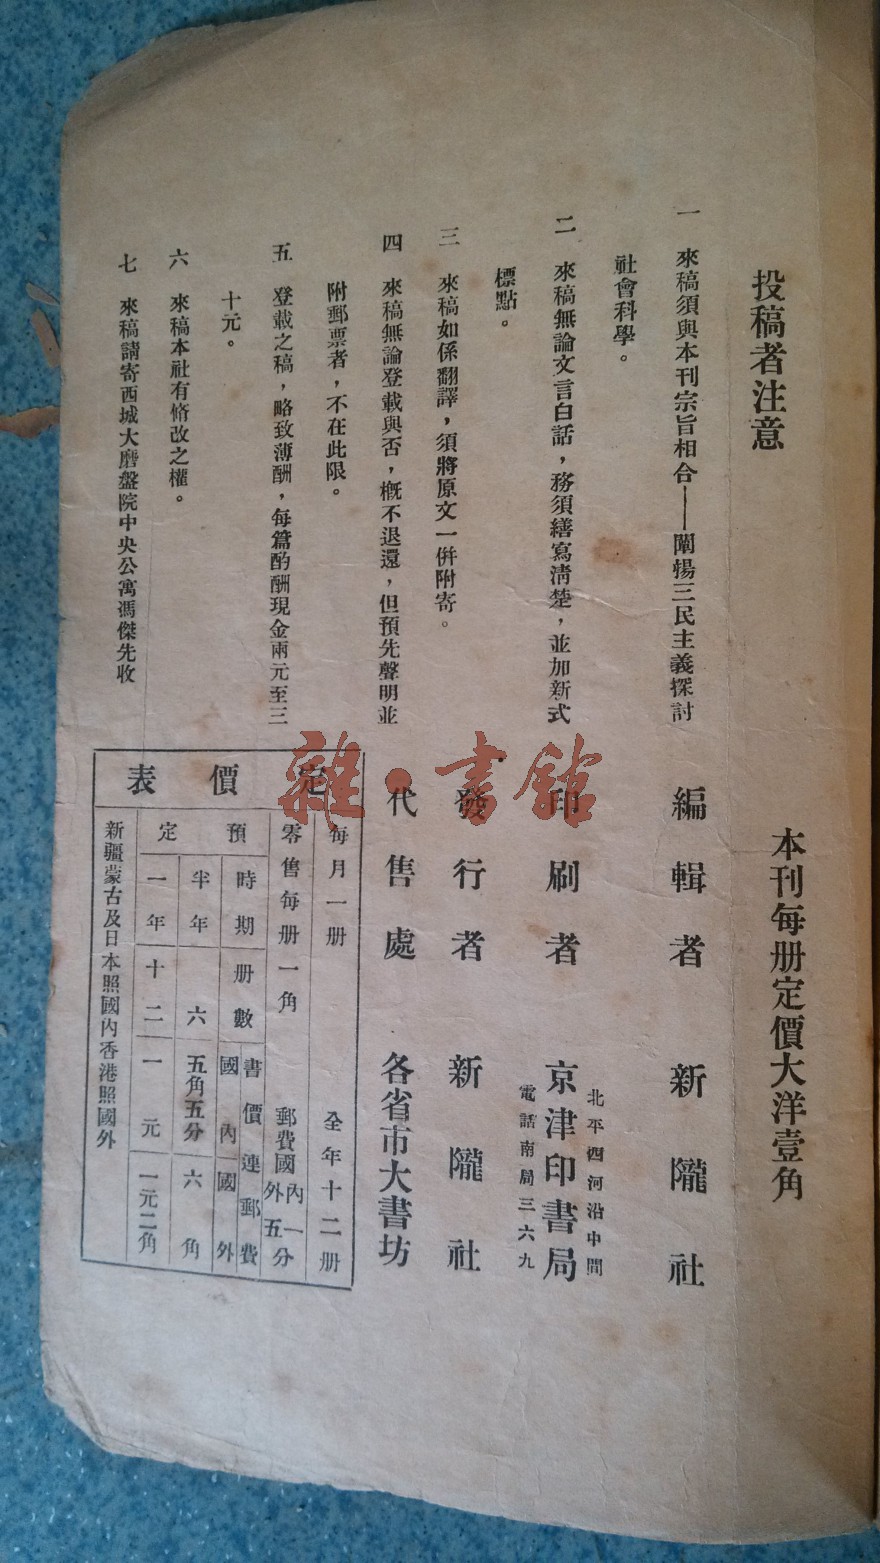 投稿者注意
一 來稿須與本刊宗旨相合——闡揚三民主義探討
社會科學。
二 來稿無論文言白話，務須繕寫清楚，並加新式
標點。
三 來稿如係翻譯，須將原文一併附寄。
四 來稿無論登載與否，槪不退還，但預先聲明並
附郵票者，不在此限。
五 登載之稿，略致薄酬，每篇酌酬現金兩元至三
十元。
六 來稿本社有脩改之權。
七 來稿請寄西城大磨盤院中央公寓馮傑先收
本刊每册定價大洋壹角
編輯者 新隴社
北平西河沿中間
印刷者 京津印書局
電話南局三六九
發行者 新隴社
代售處 各省市大書坊
定價表
每月一册 全年十二册
零售每册一角 郵費國內一分 外五
預定
時期 册數 書價連郵費
國內 國外
半年 六 五角五分 六角
一年 十二 一元 一元二角
新疆蒙古及日本照國內香港照國外
雜·書館